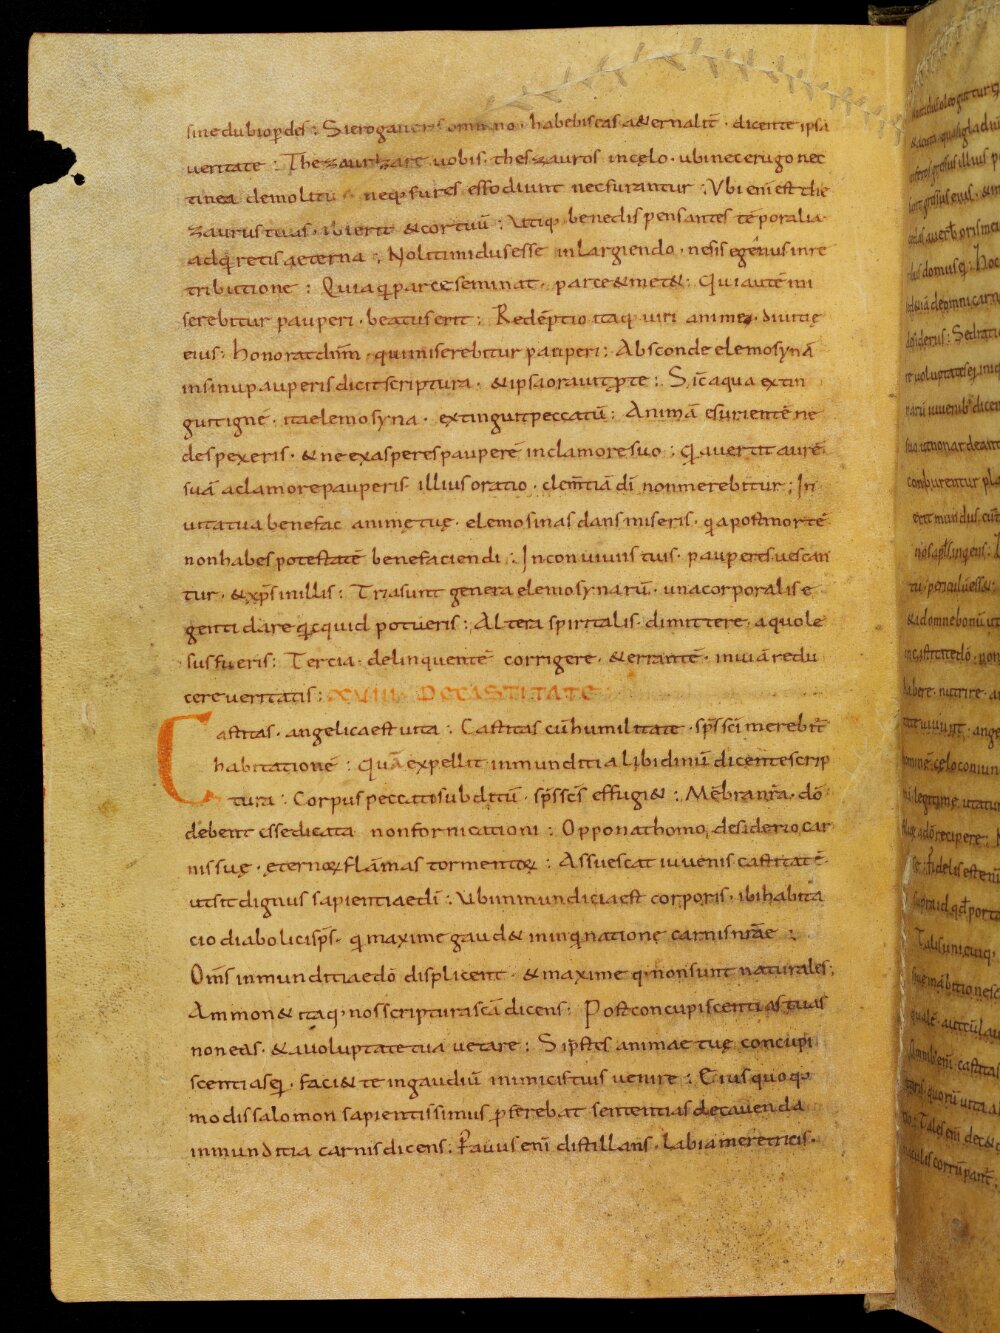 sine dubio ꝑdes : Si erogaueris omnino · habebis eas aeternalit̄ · dicente ipsa
ueritate : Thezaurizate uobis · thezauros in celo · ubi nec erugo nec
tinea demolitu neq; fures effodiunt nec furantur : Vbi eni᷎ est the
zaurus tuus · ibi erit & cor tuū : Vtiq; bene dispensantes tēporalia
adq̇retis aeterna : Noli timidus esse in largiendo · ne sis egenus in re
tributione : Quia qi parce seminat · parce & met& : Qui autē mi
serebitur pauperi · beatus erit : Redēptio itaq; uiri animę · diuitię
eius : Honorat dn̄m · qui miserebitur pauperi : Absconde elemosynā
in sinu pauperis dicit scriptura · & ipsa orauit ꝓ te : Sic̄ aqua extin
guit ignē · ita elemosyna · extinguit peccatū : Animā esurientē ne
despexeris · & ne exasperes pauperē in clamore suo : qi auertit aurē
suā a clamore pauperis · illius oratio · clem̄tiā dī non merebitur ; In
uita tua benefac animę tuę · elemosinas dans miseris · qa post mortē
non habes potestatē benefaciendi : In conuiuiis tuis · pauperes uescan
tur · & xp̄s in illis : Tria sunt genera elemosynarū · una corporalis e
genti dare qicquid potueris : Altera spiritalis · dimittere · a quo le
sus fueris : Tercia · delinquentē corrigere · & errantē · in uiā redu
cere ueritatis : XVIII · DE CASTITATE
Castitas · angelica est uita : Castitas cū humilitate · sp̄s sc̄i merebit̄
habitationē : quā expellit inmunditia libidinū dicente scrip
tura : Corpus peccati subditū · sp̄s sc̄s effugi& : Mēbra nr̄a · dō
debent esse dicata non fornicationi : Opponat homo, desiderio, car
nis suę · eternoꝝ flāmas tormentoꝝ : Assuescat iuuenis castitatē
ut sit dignus sapientiae dī : Vbi inmundicia est corporis · ibi habita
cio diabolici sp̄s · qi maxime gaud& in inqinatione carnis nr̄ae :
Om̄s inmunditiae dō displicent · & maxime q̨ non sunt naturales :
Ammon& itaq; nos scriptura sc̄a dicens : Post concupiscentias tuas
non eas · & a uoluptate tua uetare : Si p̄stes animae tuę concupi
scentias ei· faci& te in gaudiū inimicis tuis uenire : Eius quoq;
modi salomon sapientissimus ꝓferebat sententias de cauenda
inmunditia carnis dicens : Fauus eni᷎ distillans · labia meretricis ·